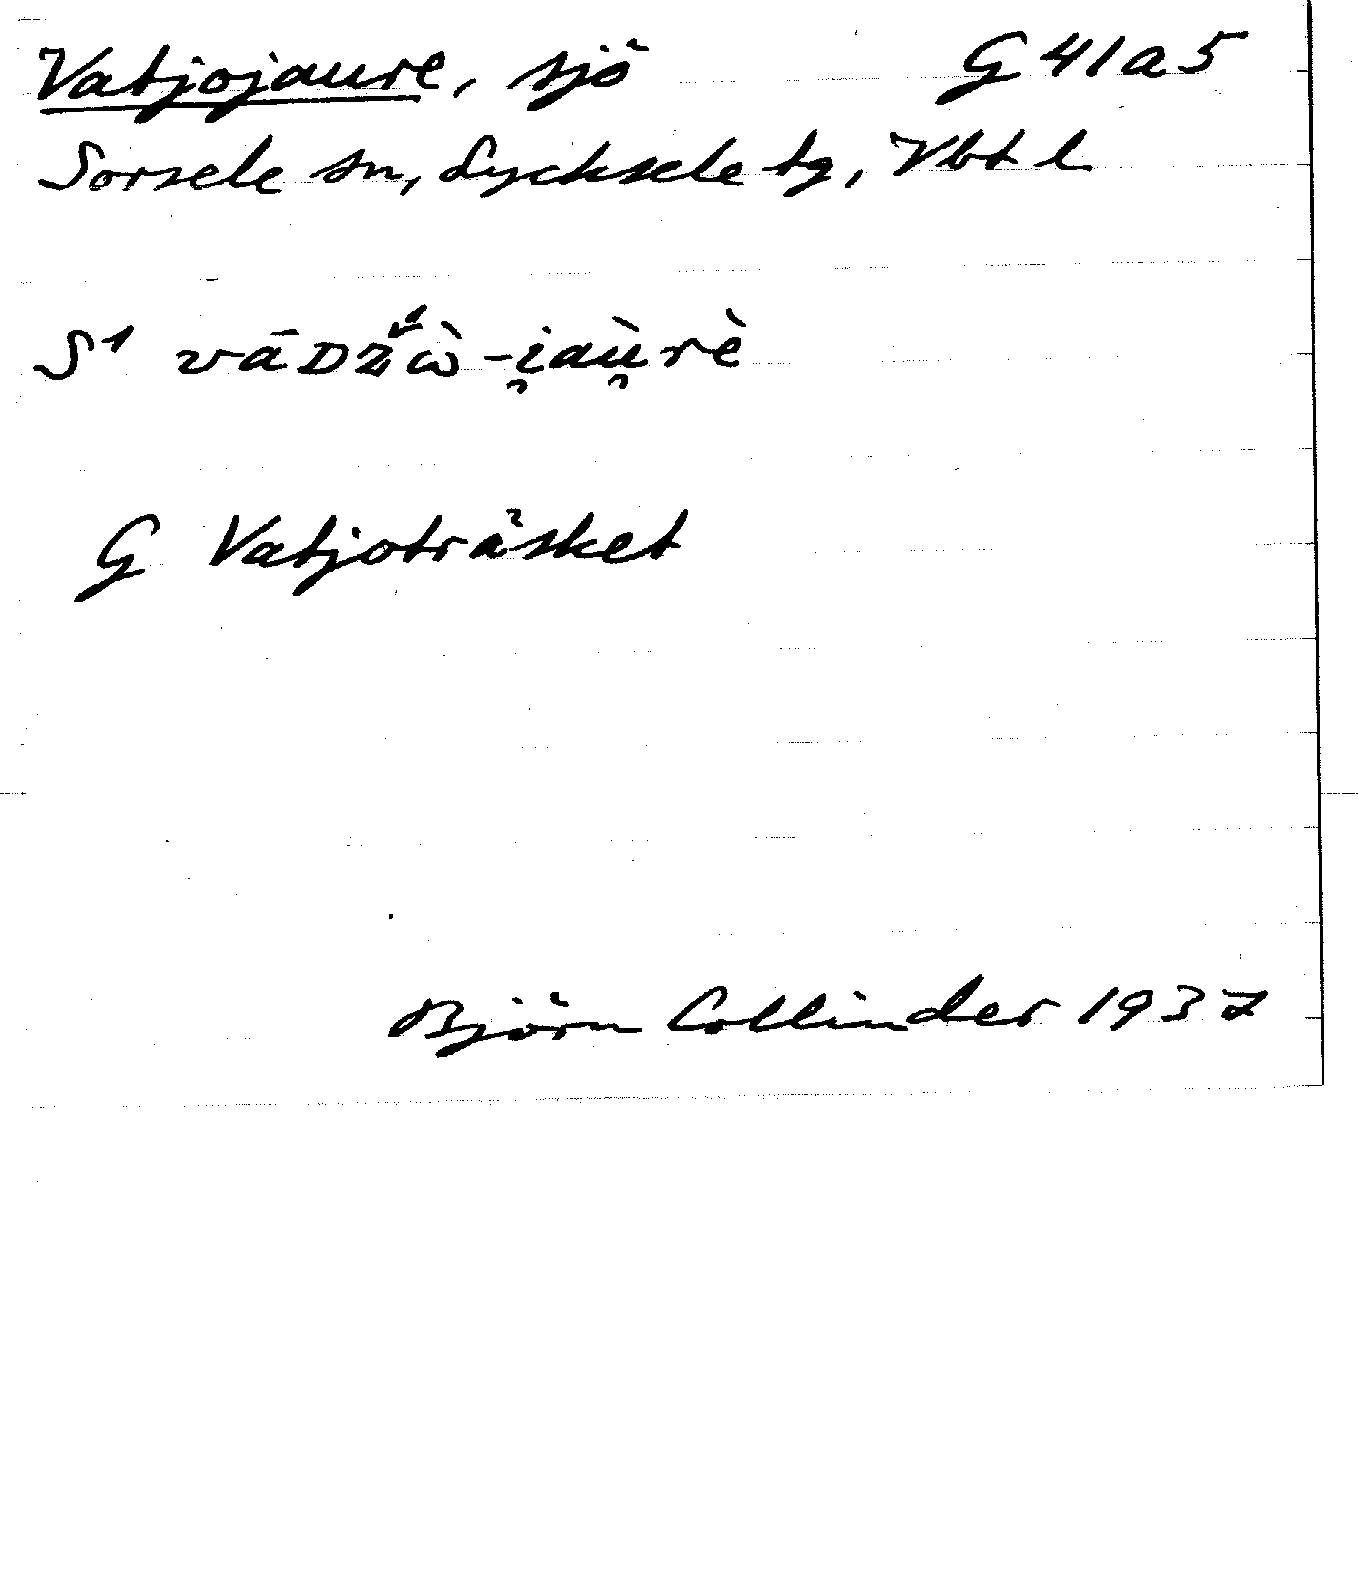 Vatjojaure, sjö G 41 a 5
Sorsele sn, Lycksele tg, Vbt l
S¹ vāDž́ὼ-i̯aù̯rè
G Vatjoträsket
Björn Collinder 1937